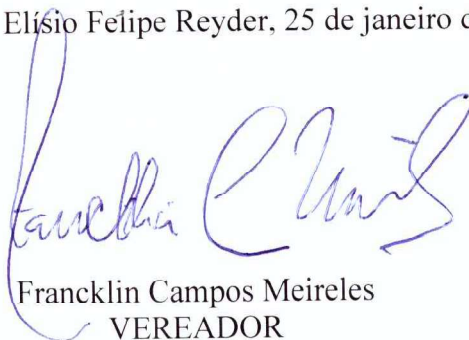 Elísio Felipe Reyder, 25 de janeiro d
Francklin Campos Meireles
VEREADOR